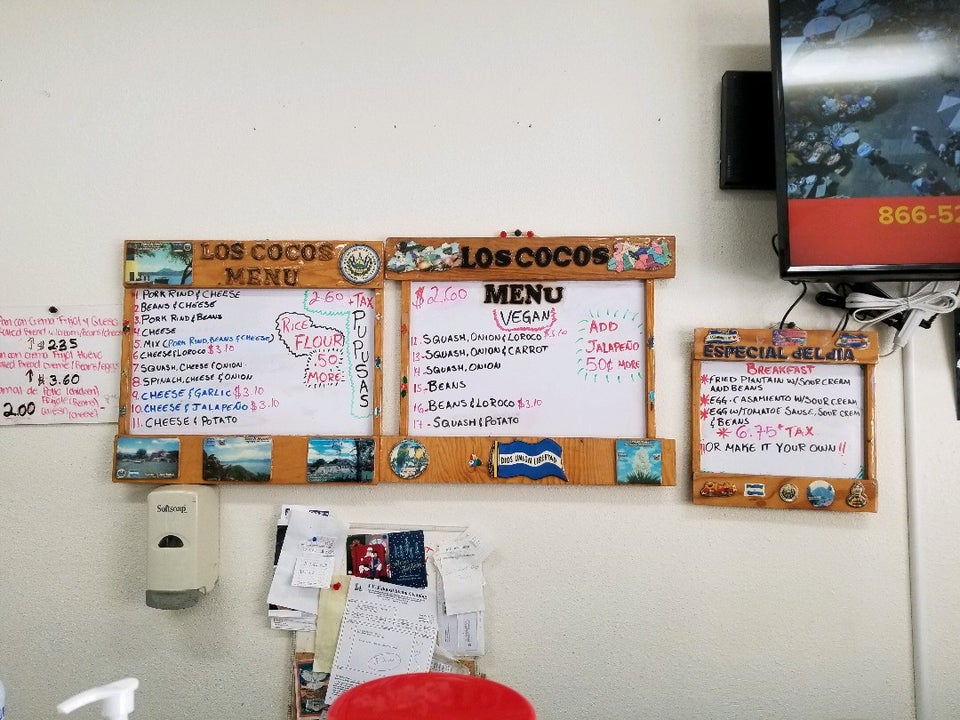 LOS COCOS
MENU
1 PORK RIND & CHEESE
2 BEANS & CHEESE
3 PORK RIND & BEANS
4 CHEESE
5. MIX (PORK RIND, BEANS & CHEESE)
6 CHEESE & LOROCO $3.10
7 SQUASH, CHEESE & ONION
8 SPINACH, CHEESE & ONION
9 CHEESE & GARLIC $3.10
10 CHEESE & JALAPEÑO $3.10
11. CHEESE & POTATO
2.60 + TAX
RICE
FLOUR
.50
MORE
PUPUSAS
LOS COCOS
MENU
VEGAN
12. SQUASH, ONION & LOROCO $3.10
13. SQUASH, ONION & CARROT
14. SQUASH, ONION
15. BEANS
16. BEANS & LOROCO $3.10
17 - SQUASH & POTATO
ADD
JALAPEÑO
50¢ MORE
DIOS UNION LIBERTAD
ESPECIAL del DIA
BREAKFAST
*FRIED PLANTAIN W/SOUR CREAM
AND BEANS
*EGG-CASAMIENTO W/SOUR CREAM
*EGG W/TOMATOE SAUSE, SOUR CREM
& BEANS
* 6.75 + TAX
!!OR MAKE IT YOUR OWN!!
con Crema Frijol y Queso
$ 2.35
con crema Frijol Huevo
$ 3.60
2.00
Softsoap
866-52